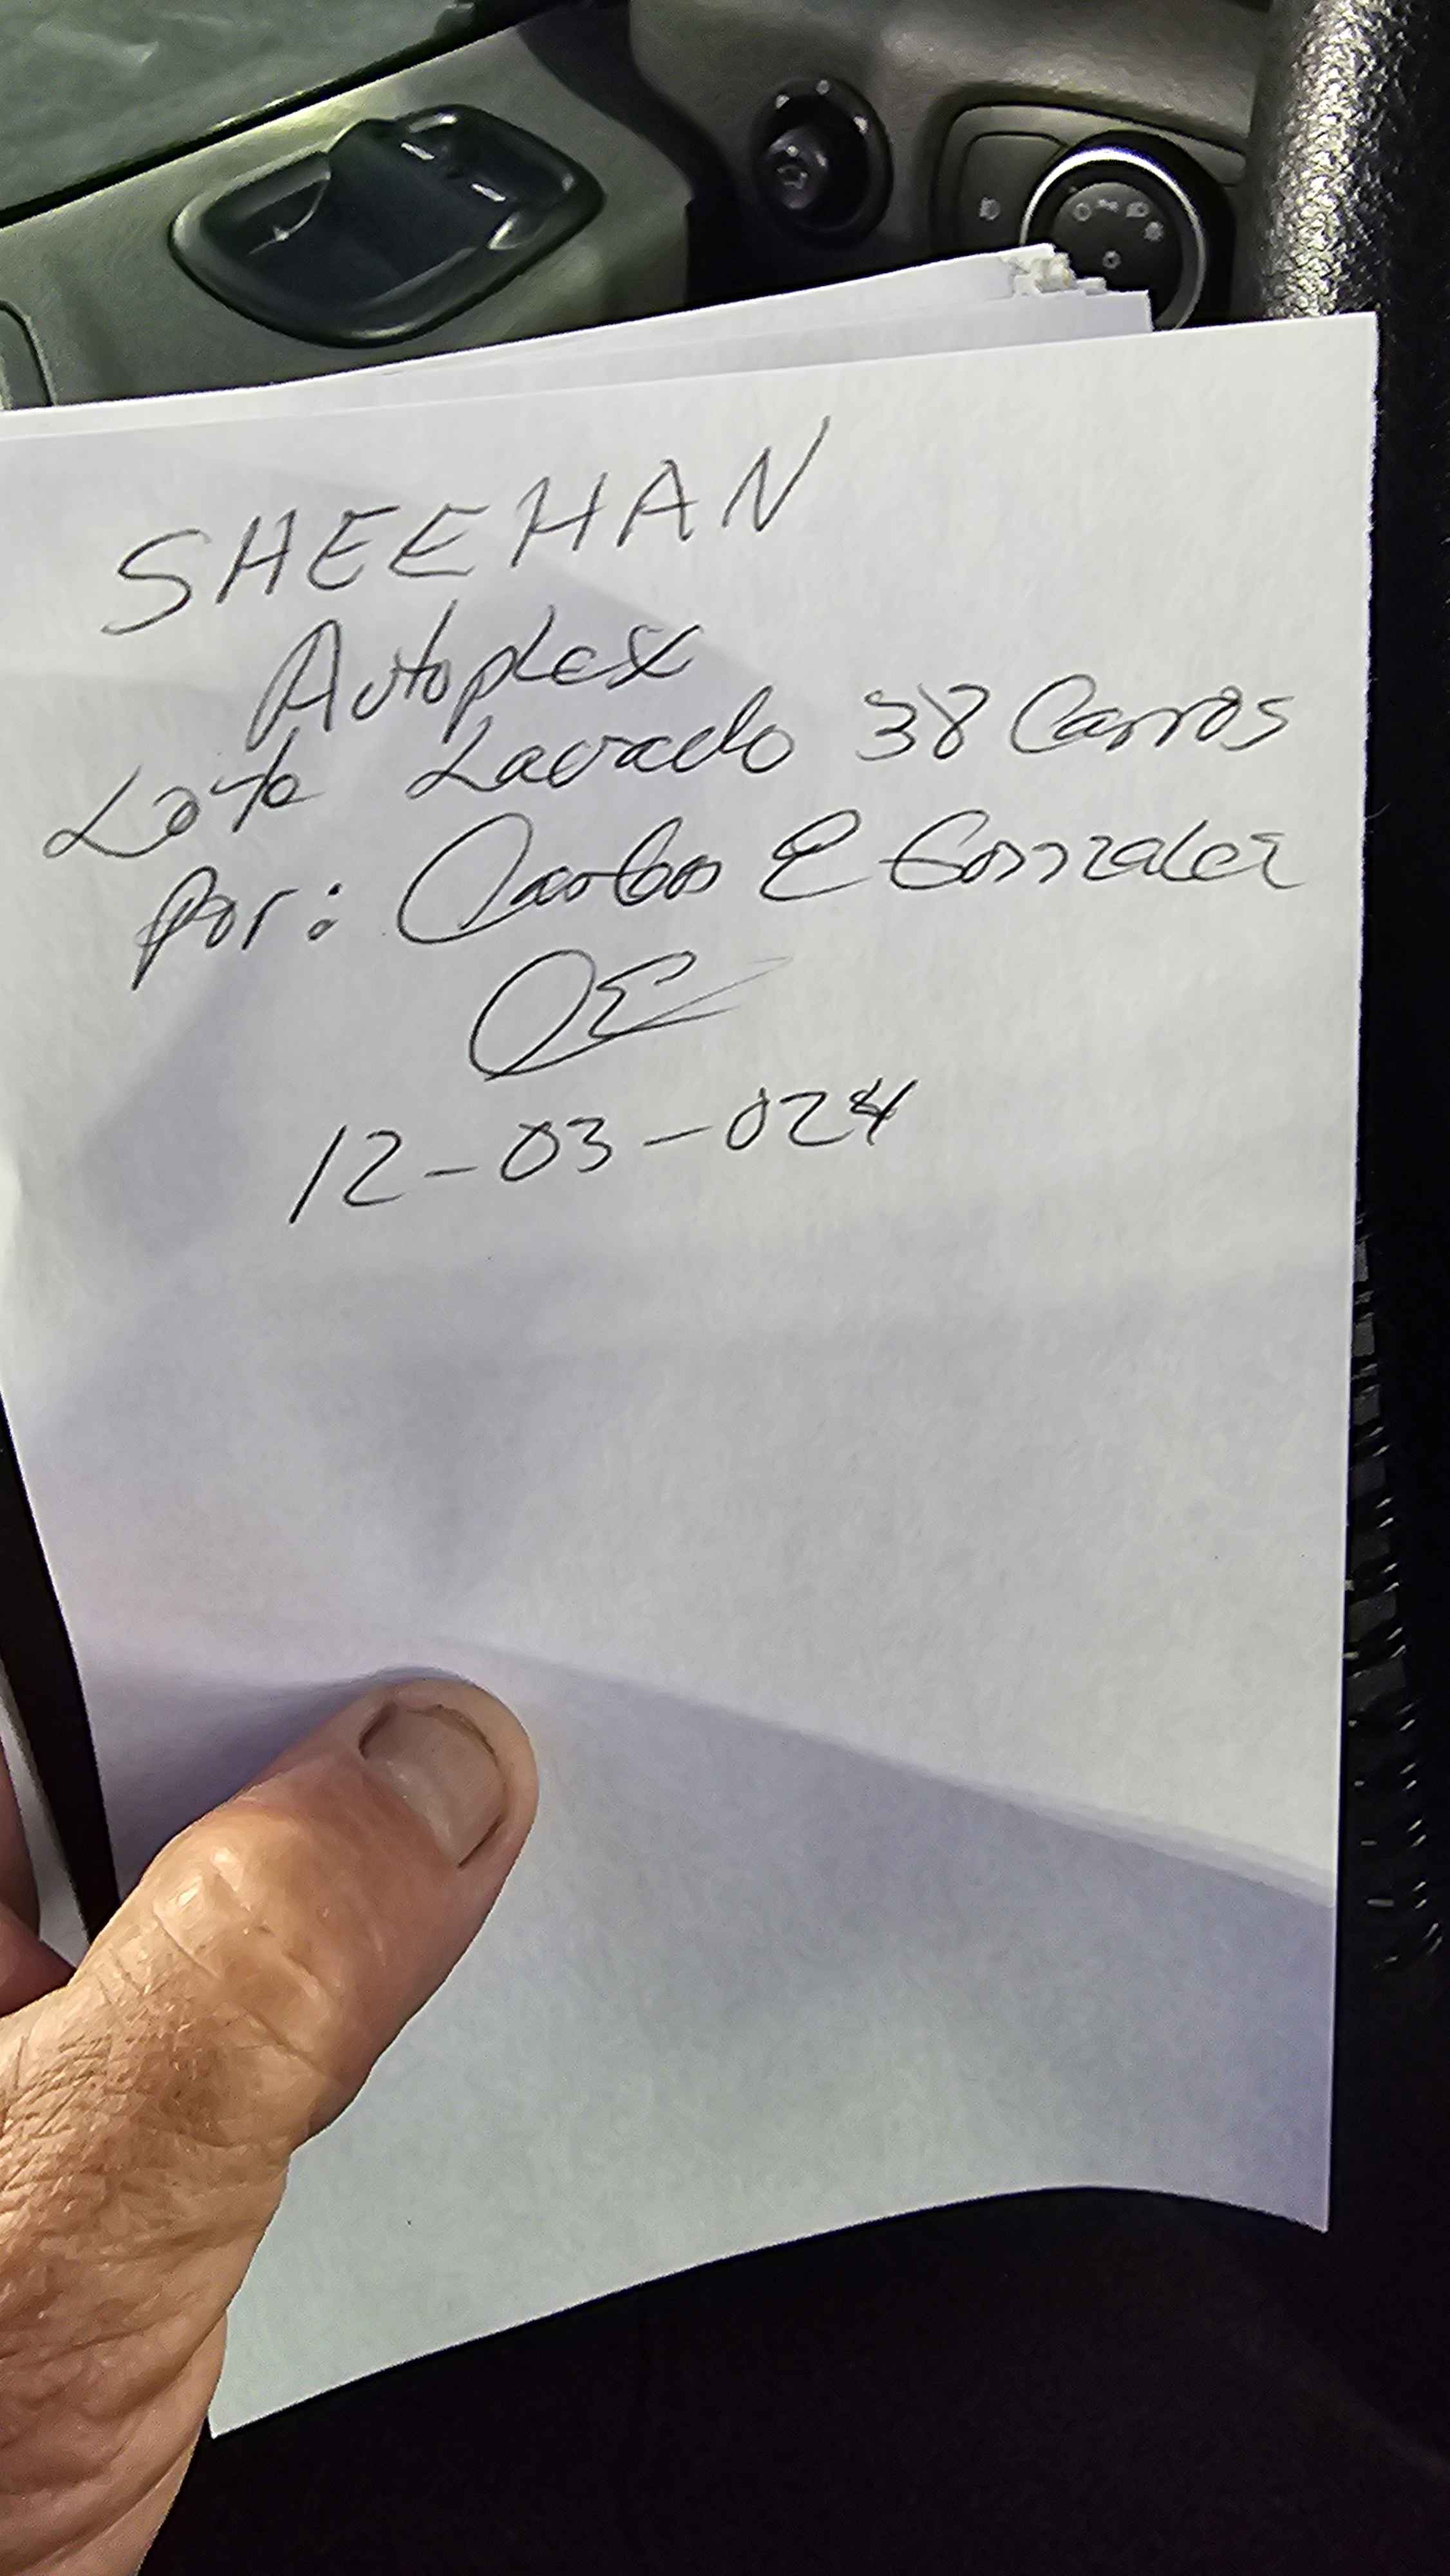 SHEEHAN
Autoplex
Lote Lavado 38 Carros
Por: Carlos E Gonzalez
12-03-024